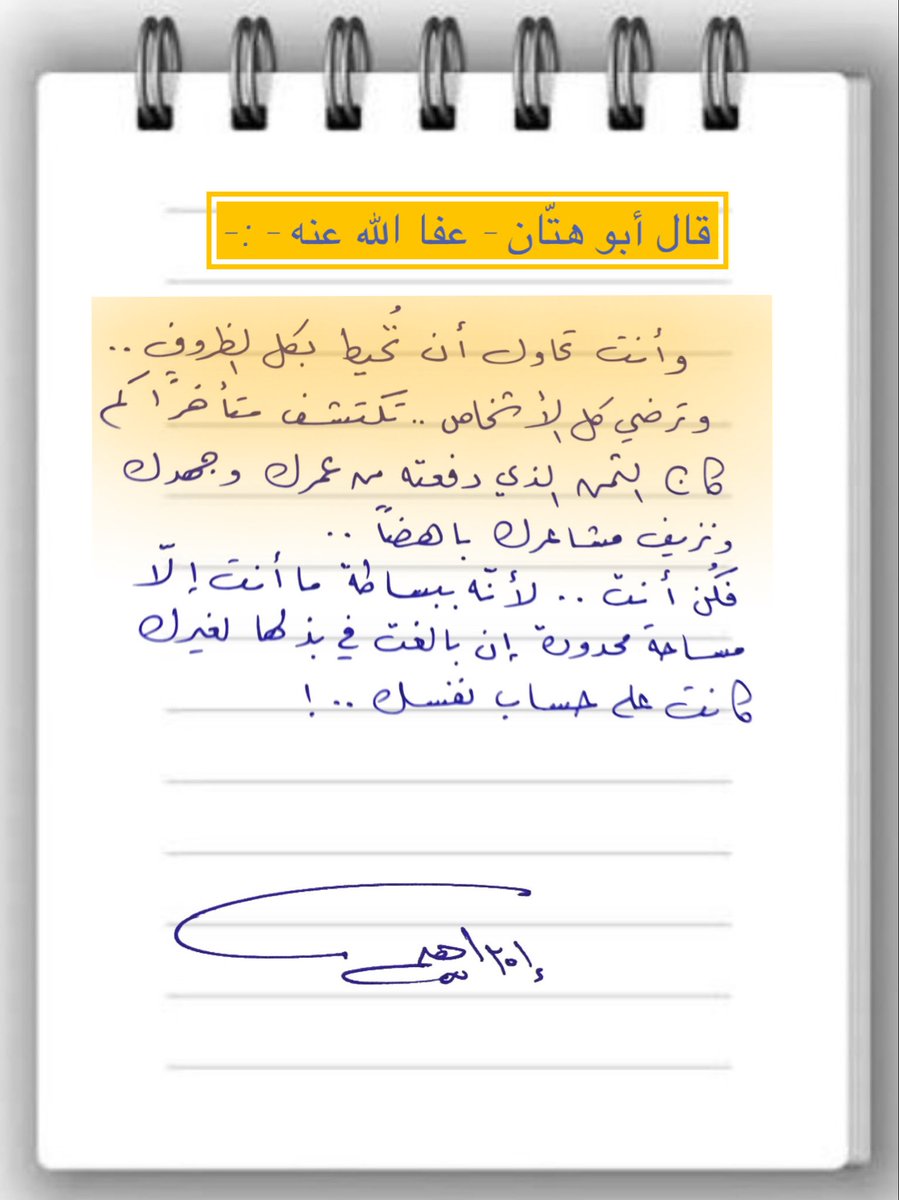 قال أبو هتّان - عفا الله عنه - :-
وأنت تحاول أن تُحيط بكل الظروف ..
وترضي كل الأشخاص .. تكتشف متأخرًا كم
كان الثمن الذي دفعته من عمرك وجهدك
ونزيف مشاعرك باهضاً ..
فكُن أنت .. لأنّه ببساطة ما أنت إلّا
مساحة محدودة إن بالغت في بذلها لغيرك
كانت على حساب نفسك .. !
إبراهيم